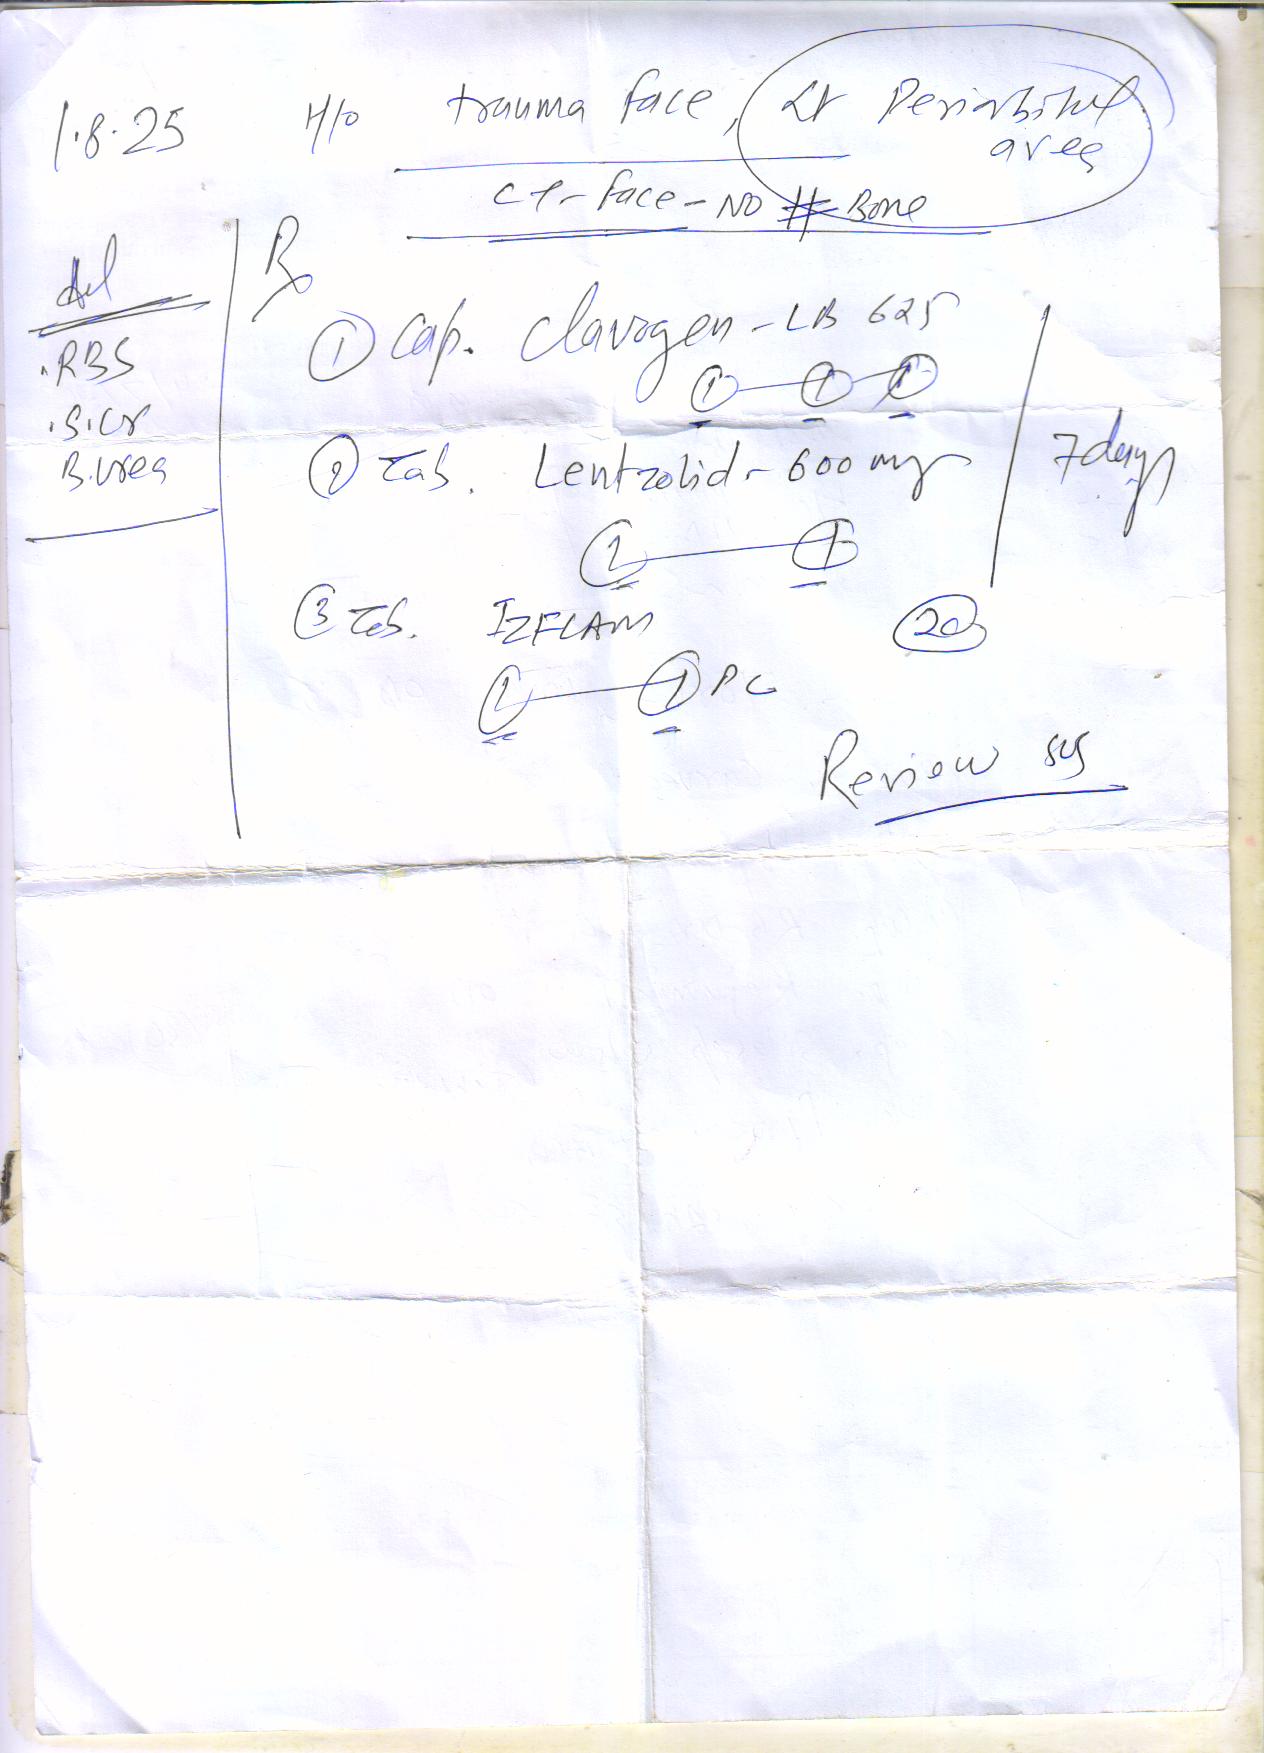 1.8.25 H/o trauma face, Lt Periorbital
area
CT - face - NO # Bone
Adv
. RBS
. S.Cr
B.urea
Rx
① Cap. Clavogen - LB 625
① — ① — ①
② Tab. Lentzolid - 600 mg
① — ①
7 days
③ Tab. IZFLAM
① — ① PC
Review